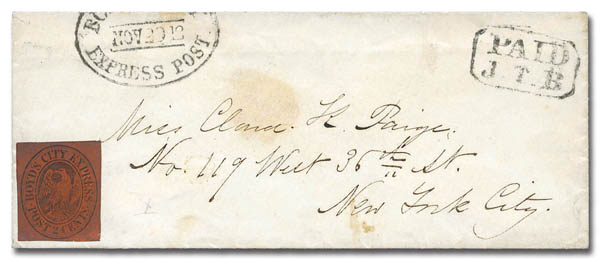 NOV 20 12
EXPRESS POST
PAID
J. T. B
Miss Clara. K. Paige.
No. 119 West 36th St.
New York City.
BOYD'S CITY EXPRESS
POST 2 CENTS